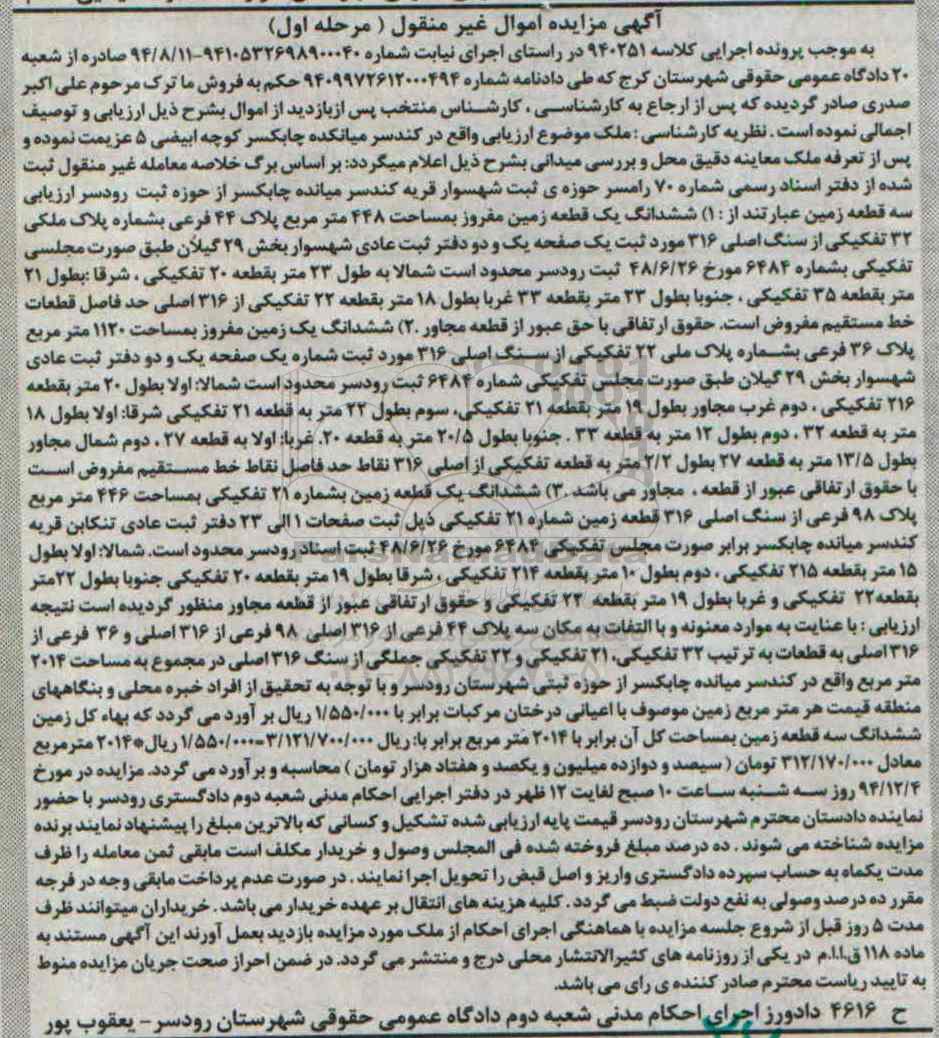 آگهی مزایده اموال غیر منقول ( مرحله اول)
به موجب پرونده اجرایی کلاسه ۹۴۰۲۵۱ در راستای اجرای نیابت شماره ۹۴۱۰۵۳۲۶۹۸۹۰۰۰۴۰-۹۴/۸/۱۱ صادره از شعبه
۲۰ دادگاه عمومی حقوقی شهرستان کرج که طی دادنامه شماره ۹۴۰۹۹۷۲۶۱۲۰۰۰۴۹۴ حکم به فروش ما ترک مرحوم علی اکبر
صدری صادر گردیده که پس از ارجاع به کارشناسی ، کارشناس منتخب پس ازبازدید از اموال بشرح ذیل ارزیابی و توصیف
اجمالی نموده است . نظریه کارشناسی : ملک موضوع ارزیابی واقع در کندسر میانکده چابکسر کوچه ابیضی ۵ عزیمت نموده و
پس از تعرفه ملک معاینه دقیق محل و بررسی میدانی بشرح ذیل اعلام میگردد: بر اساس برگ خلاصه معامله غیر منقول ثبت
شده از دفتر اسناد رسمی شماره ۷۰ رامسر حوزه ی ثبت شهسوار قریه کندسر میانده چابکسر از حوزه ثبت رودسر ارزیابی
سه قطعه زمین عبارتند از : ۱) ششدانگ یک قطعه زمین مفروز بمساحت ۴۴۸ متر مربع پلاک ۴۴ فرعی بشماره پلاک ملکی
۳۲ تفکیکی از سنگ اصلی ۳۱۶ مورد ثبت یک صفحه یک و دو دفتر ثبت عادی شهسوار بخش ۲۹ گیلان طبق صورت مجلسی
تفکیکی بشماره ۶۴۸۴ مورخ ۴۸/۶/۲۶ ثبت رودسر محدود است شمالا به طول ۲۳ متر بقطعه ۲۰ تفکیکی ، شرقا :بطول ۲۱
متر بقطعه ۳۵ تفکیکی ، جنوبا بطول ۲۳ متر بقطعه ۳۳ غربا بطول ۱۸ متر بقطعه ۲۲ تفکیکی از ۳۱۶ اصلی حد فاصل قطعات
خط مستقیم مفروض است. حقوق ارتفاقی با حق عبور از قطعه مجاور .۲) ششدانگ یک زمین مفروز بمساحت ۱۱۲۰ متر مربع
پلاک ۳۶ فرعی بشماره پلاک ملی ۲۲ تفکیکی از سنگ اصلی ۳۱۶ مورد ثبت شماره یک صفحه یک و دو دفتر ثبت عادی
شهسوار بخش ۲۹ گیلان طبق صورت مجلس تفکیکی شماره ۶۴۸۴ ثبت رودسر محدود است شمالا: اولا بطول ۲۰ متر بقطعه
۲۱۶ تفکیکی ، دوم غرب مجاور بطول ۱۹ متر بقطعه ۲۱ تفکیکی، سوم بطول ۲۲ متر به قطعه ۲۱ تفکیکی شرقا: اولا بطول ۱۸
متر به قطعه ۳۲ ، دوم بطول ۱۲ متر به قطعه ۳۳ . جنوبا بطول ۲۰/۵ متر به قطعه ۲۰. غربا: اولا به قطعه ۲۷ ، دوم شمال مجاور
بطول ۱۳/۵ متر به قطعه ۲۷ بطول ۲/۲ متر به قطعه تفکیکی از اصلی ۳۱۶ نقاط حد فاصل نقاط خط مستقیم مفروض است
با حقوق ارتفاقی عبور از قطعه ، مجاور می باشد .۳) ششدانگ یک قطعه زمین بشماره ۲۱ تفکیکی بمساحت ۴۴۶ متر مربع
پلاک ۹۸ فرعی از سنگ اصلی ۳۱۶ قطعه زمین شماره ۲۱ تفکیکی ذیل ثبت صفحات ۱ الی ۲۳ دفتر ثبت عادی تنکابن قریه
کندسر میانده چابکسر برابر صورت مجلس تفکیکی ۶۴۸۴ مورخ ۴۸/۶/۲۶ ثبت اسناد رودسر محدود است. شمالا: اولا بطول
۱۵ متر بقطعه ۲۱۵ تفکیکی ، دوم بطول ۱۰ متر بقطعه ۲۱۴ تفکیکی ، شرقا بطول ۱۹ متر بقطعه ۲۰ تفکیکی جنوبا بطول ۲۲متر
بقطعه۲۲ تفکیکی و غربا بطول ۱۹ متر بقطعه ۲۲ تفکیکی و حقوق ارتفاقی عبور از قطعه مجاور منظور گردیده است نتیجه
ارزیابی : با عنایت به موارد معنونه و با التفات به مکان سه پلاک ۴۴ فرعی از ۳۱۶ اصلی ۹۸ فرعی از ۳۱۶ اصلی و ۳۶ فرعی از
۳۱۶ اصلی به قطعات به ترتیب ۳۲ تفکیکی، ۲۱ تفکیکی و ۲۲ تفکیکی جملگی از سنگ ۳۱۶ اصلی در مجموع به مساحت ۲۰۱۴
متر مربع واقع در کندسر میانده چابکسر از حوزه ثبتی شهرستان رودسر و با توجه به تحقیق از افراد خبره محلی و بنگاههای
منطقه قیمت هر متر مربع زمین موصوف با اعیانی درختان مرکبات برابر با ۱/۵۵۰/۰۰۰ ریال بر آورد می گردد که بهاء کل زمین
ششدانگ سه قطعه زمین بمساحت کل آن برابر با ۲۰۱۴ متر مربع برابر با: ریال ۳/۱۲۱/۷۰۰/۰۰۰=۱/۵۵۰/۰۰۰ ریال*۲۰۱۴ مترمربع
معادل ۳۱۲/۱۷۰/۰۰۰ تومان ( سیصد و دوازده میلیون و یکصد و هفتاد هزار تومان ) محاسبه و برآورد می گردد. مزایده در مورخ
۹۴/۱۲/۴ روز سه شنبه ساعت ۱۰ صبح لغایت ۱۲ ظهر در دفتر اجرایی احکام مدنی شعبه دوم دادگستری رودسر با حضور
نماینده دادستان محترم شهرستان رودسر قیمت پایه ارزیابی شده تشکیل و کسانی که بالاترین مبلغ را پیشنهاد نمایند برنده
مزایده شناخته می شوند . ده درصد مبلغ فروخته شده فی المجلس وصول و خریدار مکلف است مابقی ثمن معامله را ظرف
مدت یکماه به حساب سپرده دادگستری واریز و اصل قبض را تحویل اجرا نمایند . در صورت عدم پرداخت مابقی وجه در فرجه
مقرر ده درصد وصولی به نفع دولت ضبط می گردد . کلیه هزینه های انتقال بر عهده خریدار می باشد . خریداران میتوانند ظرف
مدت ۵ روز قبل از شروع جلسه مزایده با هماهنگی اجرای احکام از ملک مورد مزایده بازدید بعمل آورند این آگهی مستند به
ماده ۱۱۸ ق.ا.ا.م در یکی از روزنامه های کثیرالانتشار محلی درج و منتشر می گردد. در ضمن احراز صحت جریان مزایده منوط
به تایید ریاست محترم صادر کننده ی رای می باشد.
ح ۴۶۱۶ دادورز اجرای احکام مدنی شعبه دوم دادگاه عمومی حقوقی شهرستان رودسر - یعقوب پور